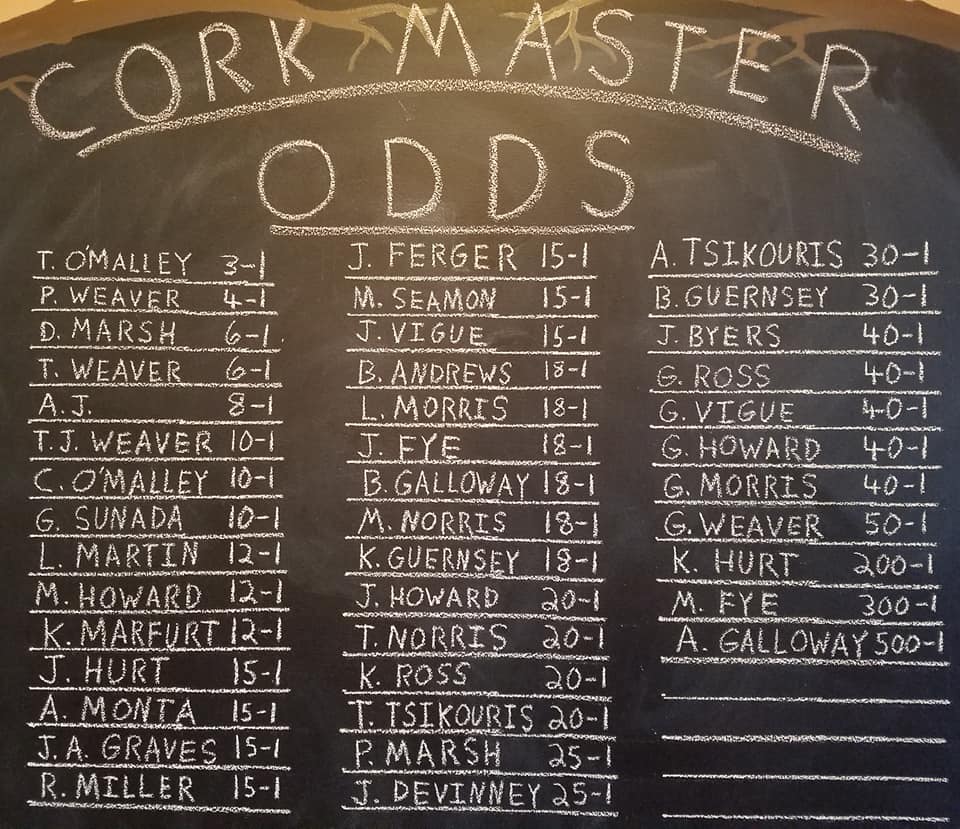 CORK MASTER
ODDS
T. O'MALLEY 3-1
P. WEAVER 4-1
D. MARSH 6-1
T. WEAVER 6-1
A.J. 8-1
T.J. WEAVER 10-1
C. O'MALLEY 10-1
G. SUNADA 10-1
L. MARTIN 12-1
M. HOWARD 12-1
K. MARFURT 12-1
J. HURT 15-1
A. MONTA 15-1
J.A. GRAVES 15-1
R. MILLER 15-1
J. FERGER 15-1
M. SEAMON 15-1
J. VIGUE 15-1
B. ANDREWS 18-1
L. MORRIS 18-1
J. FYE 18-1
B. GALLOWAY 18-1
M. NORRIS 18-1
K. GUERNSEY 18-1
J. HOWARD 20-1
T. NORRIS 20-1
K. ROSS 20-1
T. TSIKOURIS 20-1
P. MARSH 25-1
J. DEVINNEY 25-1
A. TSIKOURIS 30-1
B. GUERNSEY 30-1
J. BYERS 40-1
G. ROSS 40-1
G. VIGUE 40-1
G. HOWARD 40-1
G. MORRIS 40-1
G. WEAVER 50-1
K. HURT 200-1
M. FYE 300-1
A. GALLOWAY 500-1